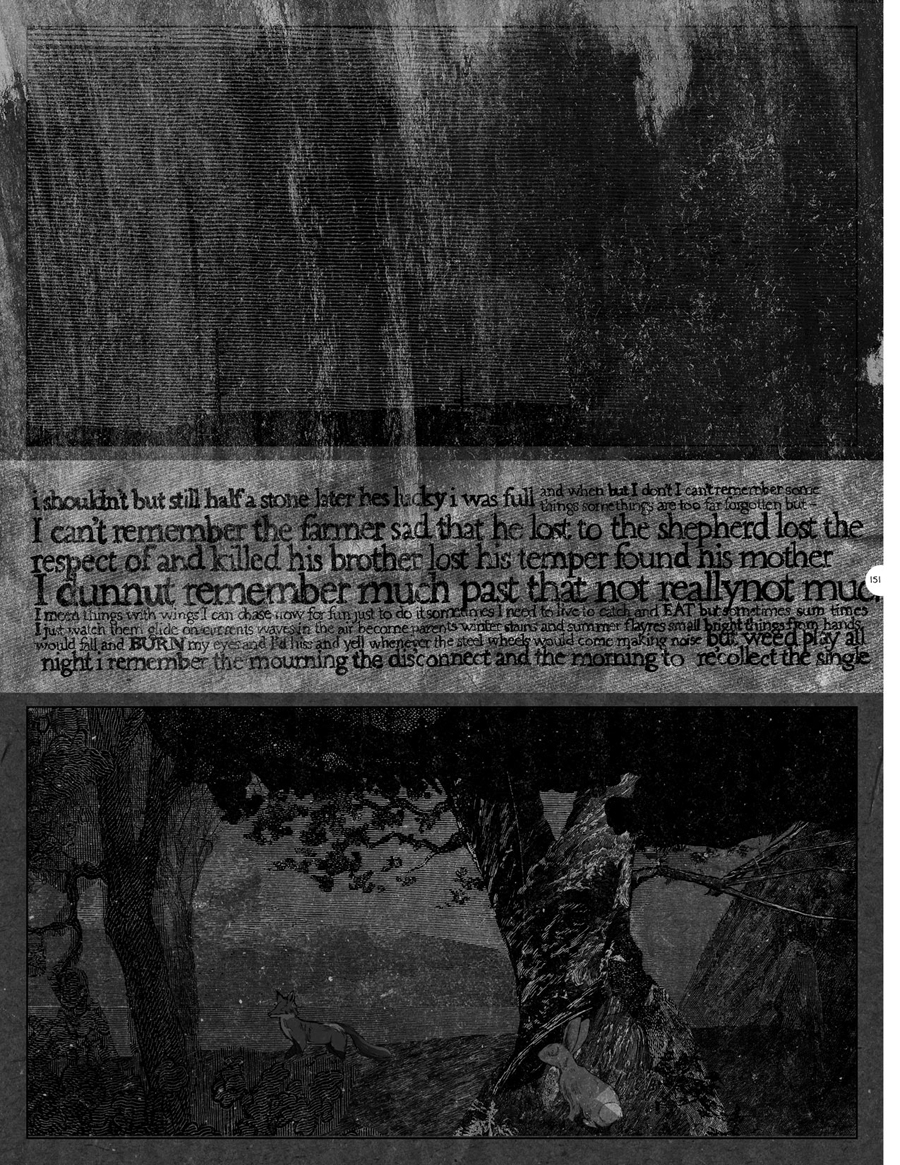 i shouldn't but still half a stone later hes lucky i was full and when but I don't I can't remember some
things somethings are too far forgotten but –
I can't remember the farmer sad that he lost to the shepherd lost the
respect of and killed his brother lost his temper found his mother
I dunnut remember much past that not reallynot muc
I meen things with wings I can chase now for fun just to do it sometimes I need to live to catch and EAT but sometimes sum times
I just watch them glide on currents waves in the air become parents winter stains and summer flayres small bright things from hands
would fall and BURN my eyes and I'd hiss and yell whenever the steel wheels would come making noise but weed play all
night i remember the mourning the disconnect and the morning to recollect the single
151